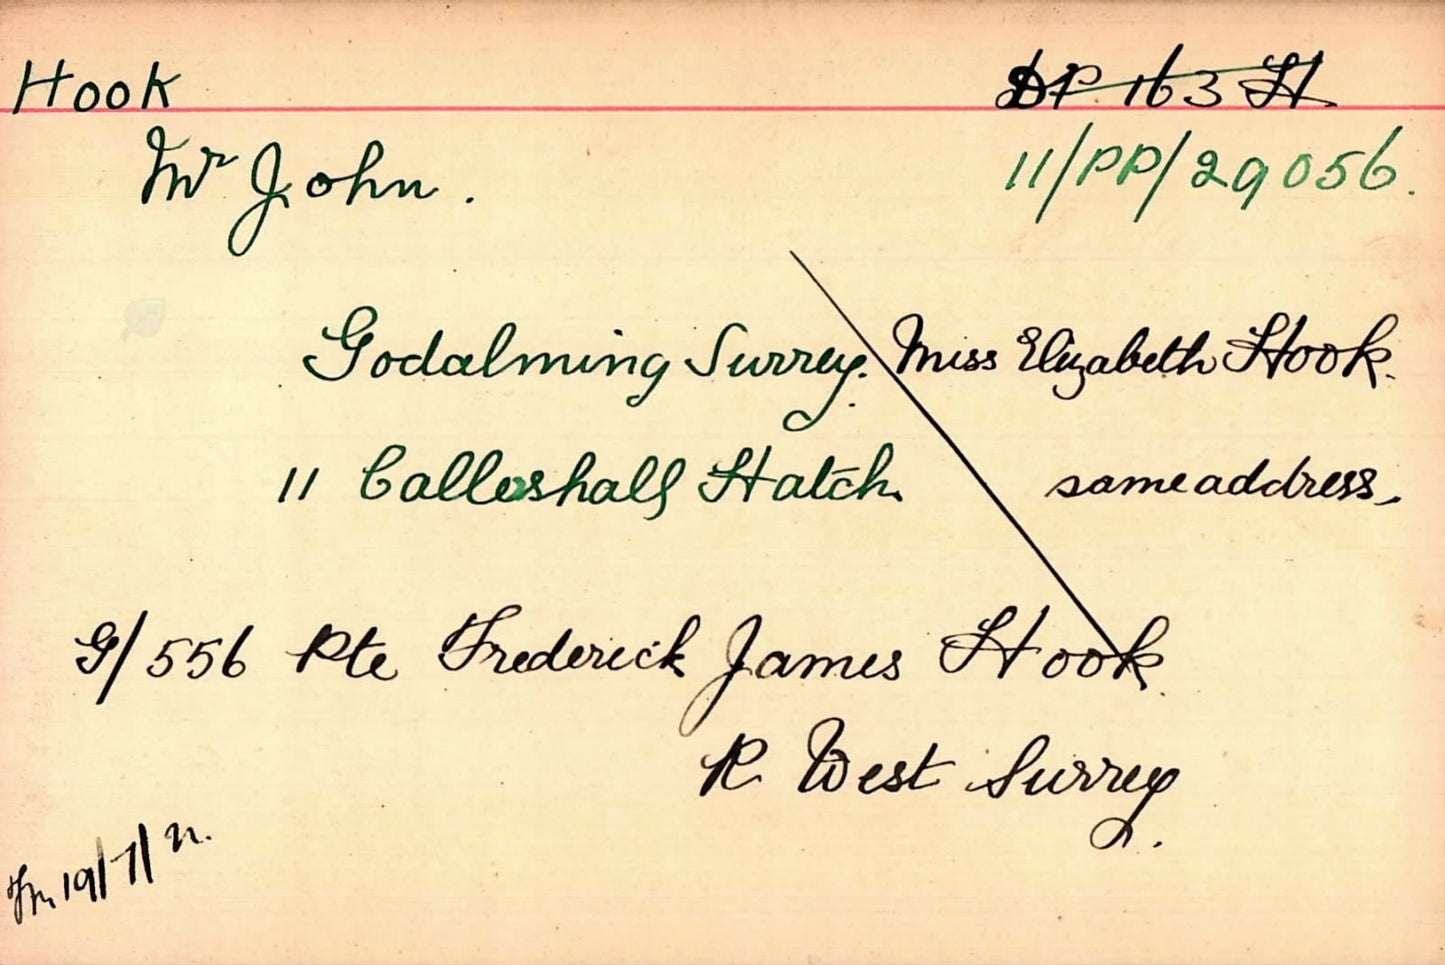 Hook
DP. 163 H
Mr John.
11/PP/29056.
Godalming Surrey. Miss Elizabeth Hook.
11 Calleshall Hatch. same address.
G/556 Pte Frederick James Hook.
R West Surrey.
19/7/